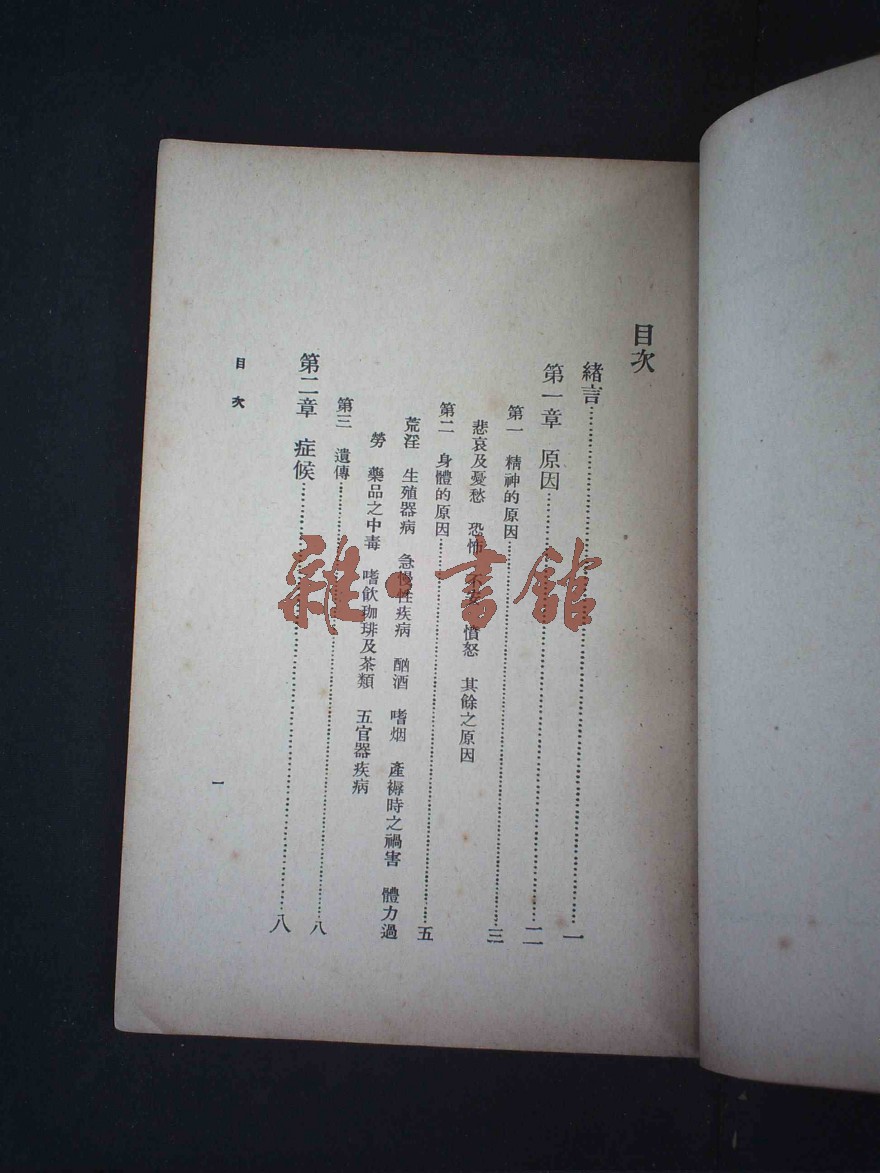 目次
緒言……一
第一章 原因……二
第一 精神的原因……三
悲哀及憂愁 恐怖 不 憤怒 其餘之原因
第二 身體的原因……五
荒淫 生殖器病 急慢性疾病 酗酒 嗜烟 產褥時之禍害 體力過
勞 藥品之中毒 嗜飲珈琲及茶類 五官器疾病
第三 遺傳……八
第二章 症候……八
目次
一
雜·書館